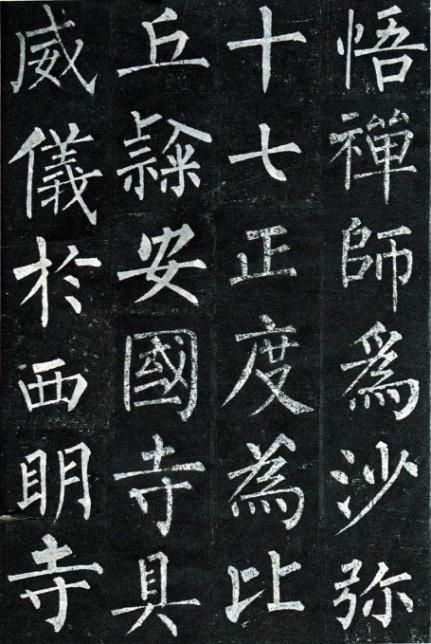 悟禪師爲沙弥
十七正度為比
丘𨽻安國寺具
威儀於西明寺